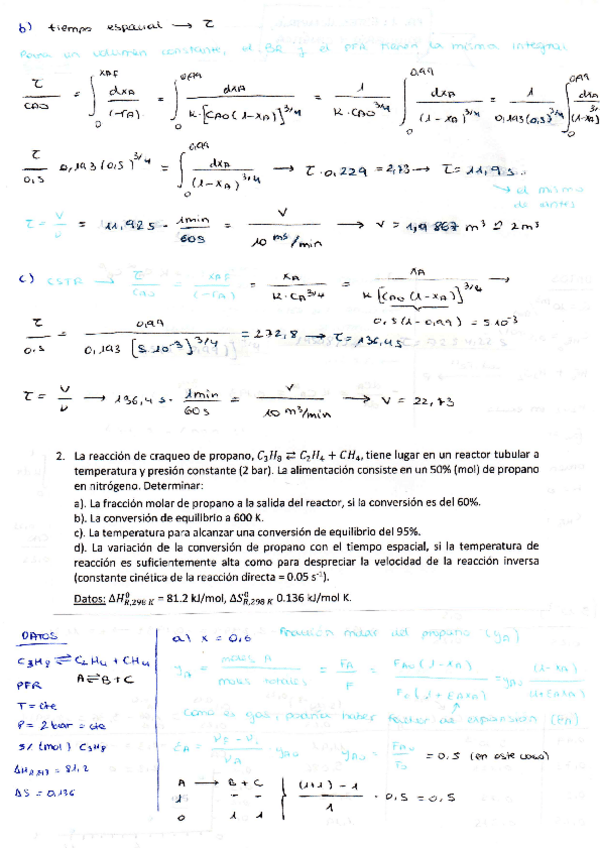 b) tiempo espacial → τ
Para un volumen constante, el BR y el PFR tienen la misma integral
τ/CAO = ∫₀^XAF dxA/(-rA) = ∫₀^0,99 dxA/(K·[CAO(1-XA)]^3/4) = 1/(K·CAO^3/4) ∫₀^0,99 dxA/(1-XA)^3/4 = 1/(0,193(0,5)^3/4) ∫₀^0,99 dxA/(1-XA)^3/4
τ/0,5 0,193(0,5)^3/4 = ∫₀^0,99 dxA/(1-XA)^3/4 → τ·0,229 = 2,73 → τ = 11,9 s..
→ el mismo
de antes
τ = V/ν = 11,92 s · 1min/60s = V/10 m³/min → V = 1,9867 m³ ≅ 2m³
c) CSTR → τ/CAO = XAF/(-rA) = XA/(K·CA^3/4) = XA/(K[CAO(1-XA)]^3/4) →
0,5(1-0,99) = 5·10⁻³
τ/0,5 = 0,99/(0,193[5·10⁻³]^3/4) = 272,8 → τ = 136,4 s
τ = V/ν → 136,4 s · 1min/60s = V/10 m³/min → V = 22,73
2. La reacción de craqueo de propano, C₃H₈ ⇄ C₂H₄ + CH₄, tiene lugar en un reactor tubular a
temperatura y presión constante (2 bar). La alimentación consiste en un 50% (mol) de propano
en nitrógeno. Determinar:
a). La fracción molar de propano a la salida del reactor, si la conversión es del 60%.
b). La conversión de equilibrio a 600 K.
c). La temperatura para alcanzar una conversión de equilibrio del 95%.
d). La variación de la conversión de propano con el tiempo espacial, si la temperatura de
reacción es suficientemente alta como para despreciar la velocidad de la reacción inversa
(constante cinética de la reacción directa = 0.05 s⁻¹).
Datos: ΔH⁰R,298 K = 81.2 kJ/mol, ΔS⁰R,298 K 0.136 kJ/mol K.
DATOS
C₃H₈ ⇄ C₂H₄ + CH₄
A ⇄ B + C
PFR
T = cte
P = 2 bar = cte
(mol) C₃H₈
= 81,2
ΔS = 0,136
a) x = 0,6 Fracción molar del propano (yA)
yA = moles A/moles totales = FA/F = FAO(1-XA)/(FO(1+EAXA)) = yAO (1-XA)/(1+EAXA)
como es gas, podría haber factor de expansión (EA)
EA = (νF - νi)/νA · yAO yAO = FAO/FO = 0.5 (en este caso)
A → B + C
1 - -
0 1 1
((1+1) - 1)/1 · 0,5 = 0,5